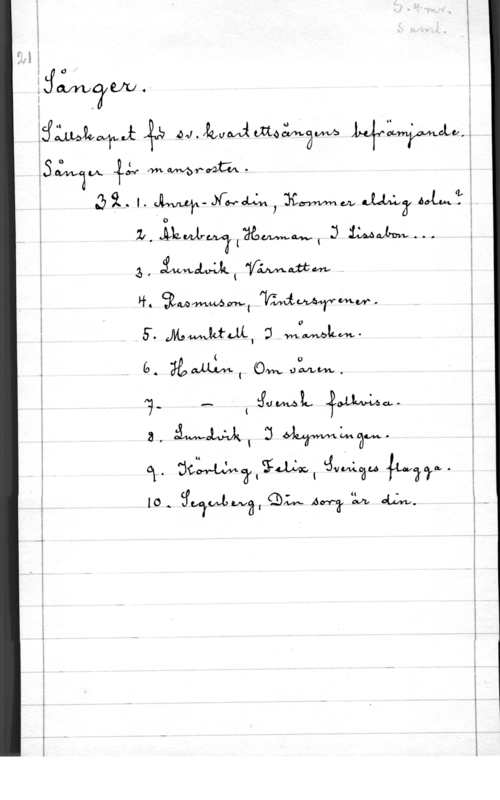 S.4 mr.
Saml.
21
Sånger.
Sällskapet för sv. kvartettsångens befrämjande.
Sånger för mansröster.
32. 1. Anrep-Nordin, Kommer aldrig solen?
2. Åkerberg, Herman, I Lissabon...
3. Lundvik, Vårnatten
4. Rasmuson, Vintersyrener.
5. Munktell, I månsken.
6. Hallén, Om våren.
7. - , Svensk folkvisa.
8. Lundvik, I skymningen.
9. Körling, Felix, Sveriges flagga.
10. Segerberg, Din sorg är din.